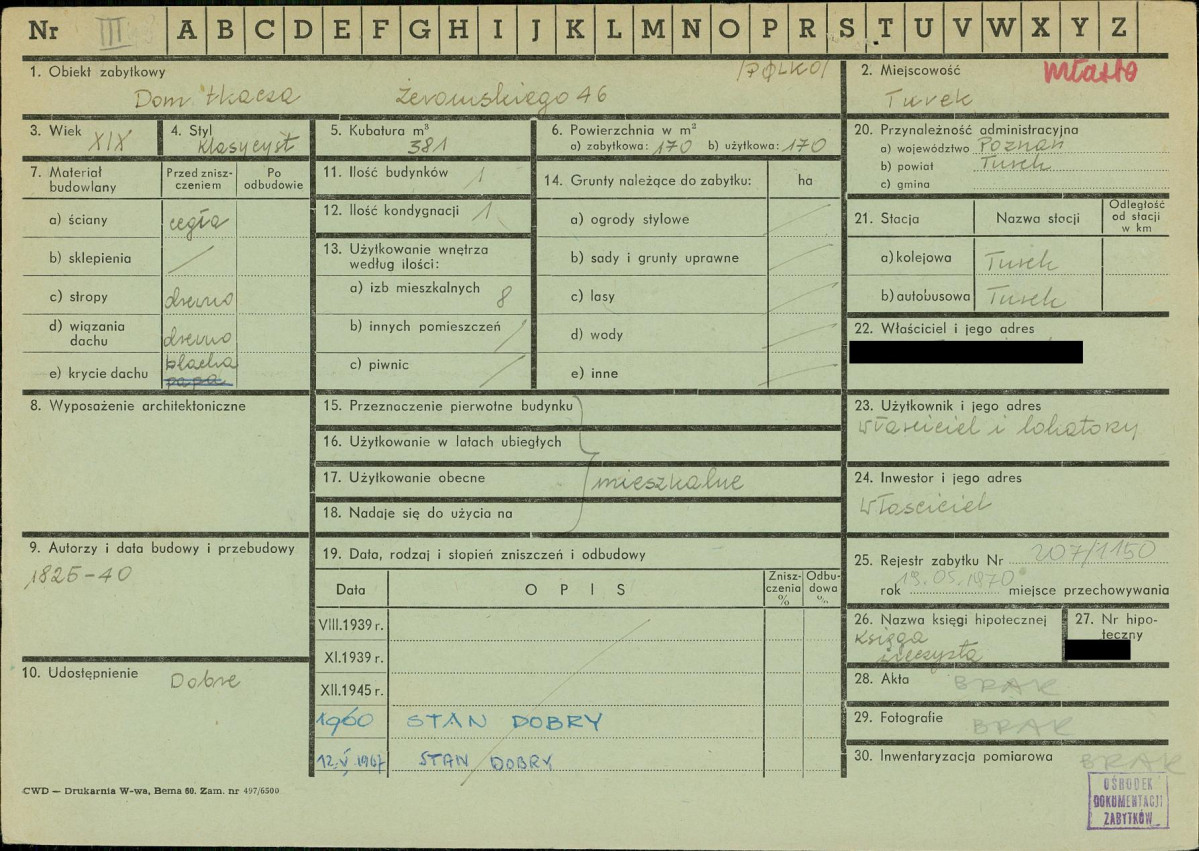 Nr III A B C D E F G H I J K L M N O P R S T U V W X Y Z
1. Obiekt zabytkowy /POLKO/
Dom tkacza Żeromskiego 46
2. Miejscowość miasto
Turek
3. Wiek XIX
4. Styl klasycyst
5. Kubatura m³ 381
6. Powierzchnia w m²
a) zabytkowa: 170 b) użytkowa: 170
20. Przynależność administracyjna
a) województwo Poznań
b) powiat Turek
c) gmina
7. Materiał budowlany
Przed zniszczeniem
Po odbudowie
a) ściany cegła
b) sklepienia /
c) stropy drewno
d) wiązania dachu drewno
e) krycie dachu blacha papa
11. Ilość budynków 1
12. Ilość kondygnacji 1
13. Użytkowanie wnętrza
według ilości:
a) izb mieszkalnych 8
b) innych pomieszczeń /
c) piwnic /
14. Grunty należące do zabytku: ha
a) ogrody stylowe
b) sady i grunty uprawne
c) lasy
d) wody
e) inne
21. Stacja Nazwa stacji Odległość od stacji w km
a) kolejowa Turek
b) autobusowa Turek
22. Właściciel i jego adres
8. Wyposażenie architektoniczne
15. Przeznaczenie pierwotne budynku
16. Użytkowanie w latach ubiegłych
17. Użytkowanie obecne mieszkalne
18. Nadaje się do użycia na
23. Użytkownik i jego adres
właściciel i lokatorzy
24. Inwestor i jego adres
właściciel
9. Autorzy i data budowy i przebudowy
1825-40
19. Data, rodzaj i stopień zniszczeń i odbudowy
Data OPIS Zniszczenia % Odbudowa %
VIII.1939 r.
XI.1939 r.
XII.1945 r.
1960 STAN DOBRY
12.V.1967 STAN DOBRY
25. Rejestr zabytku Nr 207/1150
rok 19.05.1970 miejsce przechowywania
26. Nazwa księgi hipotecznej
księga
wieczysta
27. Nr hipoteczny
10. Udostępnienie Dobre
28. Akta BRAK
29. Fotografie BRAK
30. Inwentaryzacja pomiarowa BRAK
CWD — Drukarnia W-wa, Bema 60. Zam. nr 497/6500
OŚRODEK
DOKUMENTACJI
ZABYTKÓW